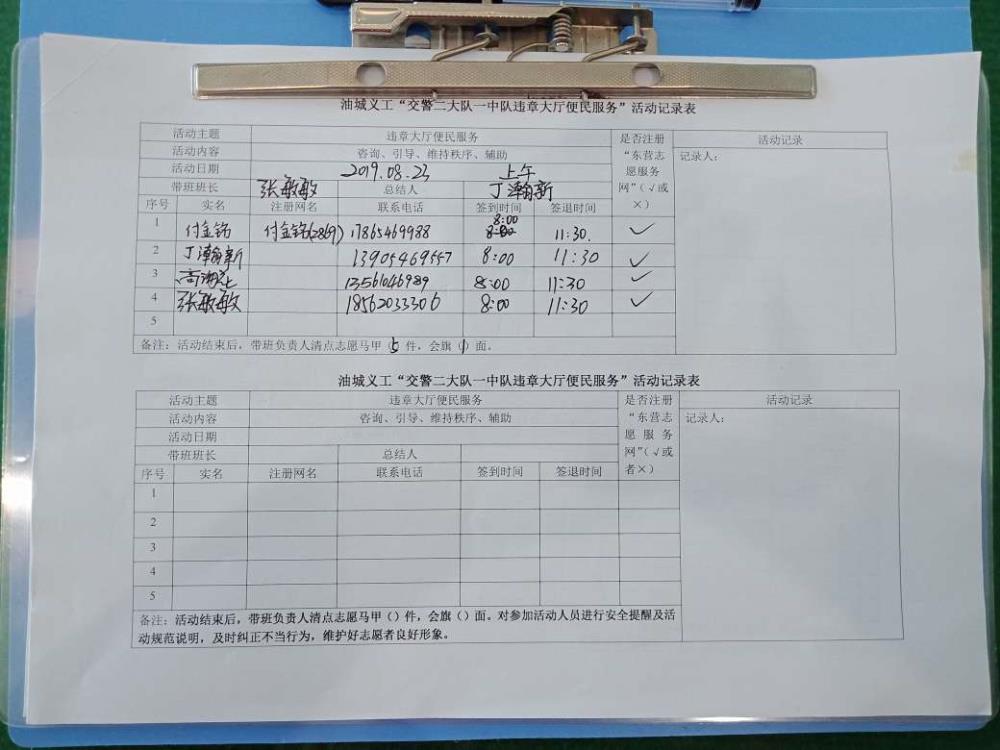 油城义工“交警二大队一中队违章大厅便民服务”活动记录表
活动主题 违章大厅便民服务 是否注册“东营志愿服务网”（√或×） 活动记录
活动内容 咨询、引导、维持秩序、辅助 记录人：
活动日期 2019.08.23 上午
带班班长 张敏敏 总结人 丁瀚新
序号 实名 注册网名 联系电话 签到时间 签退时间
1 付金铭 付金铭(2869) 17865469988 8:00 11:30. ✓
2 丁瀚新 13905469557 8:00 11:30 ✓
3 高 13561046989 8:00 11:30 ✓
4 张敏敏 18562033306 8:00 11:30 ✓
5
备注：活动结束后，带班负责人清点志愿马甲（5）件，会旗（1）面。
油城义工“交警二大队一中队违章大厅便民服务”活动记录表
活动主题 违章大厅便民服务 是否注册“东营志愿服务网”（√或者×） 活动记录
活动内容 咨询、引导、维持秩序、辅助 记录人：
活动日期
带班班长 总结人
序号 实名 注册网名 联系电话 签到时间 签退时间
1
2
3
4
5
备注：活动结束后，带班负责人清点志愿马甲（）件，会旗（）面。对参加活动人员进行安全提醒及活
动规范说明，及时纠正不当行为，维护好志愿者良好形象。